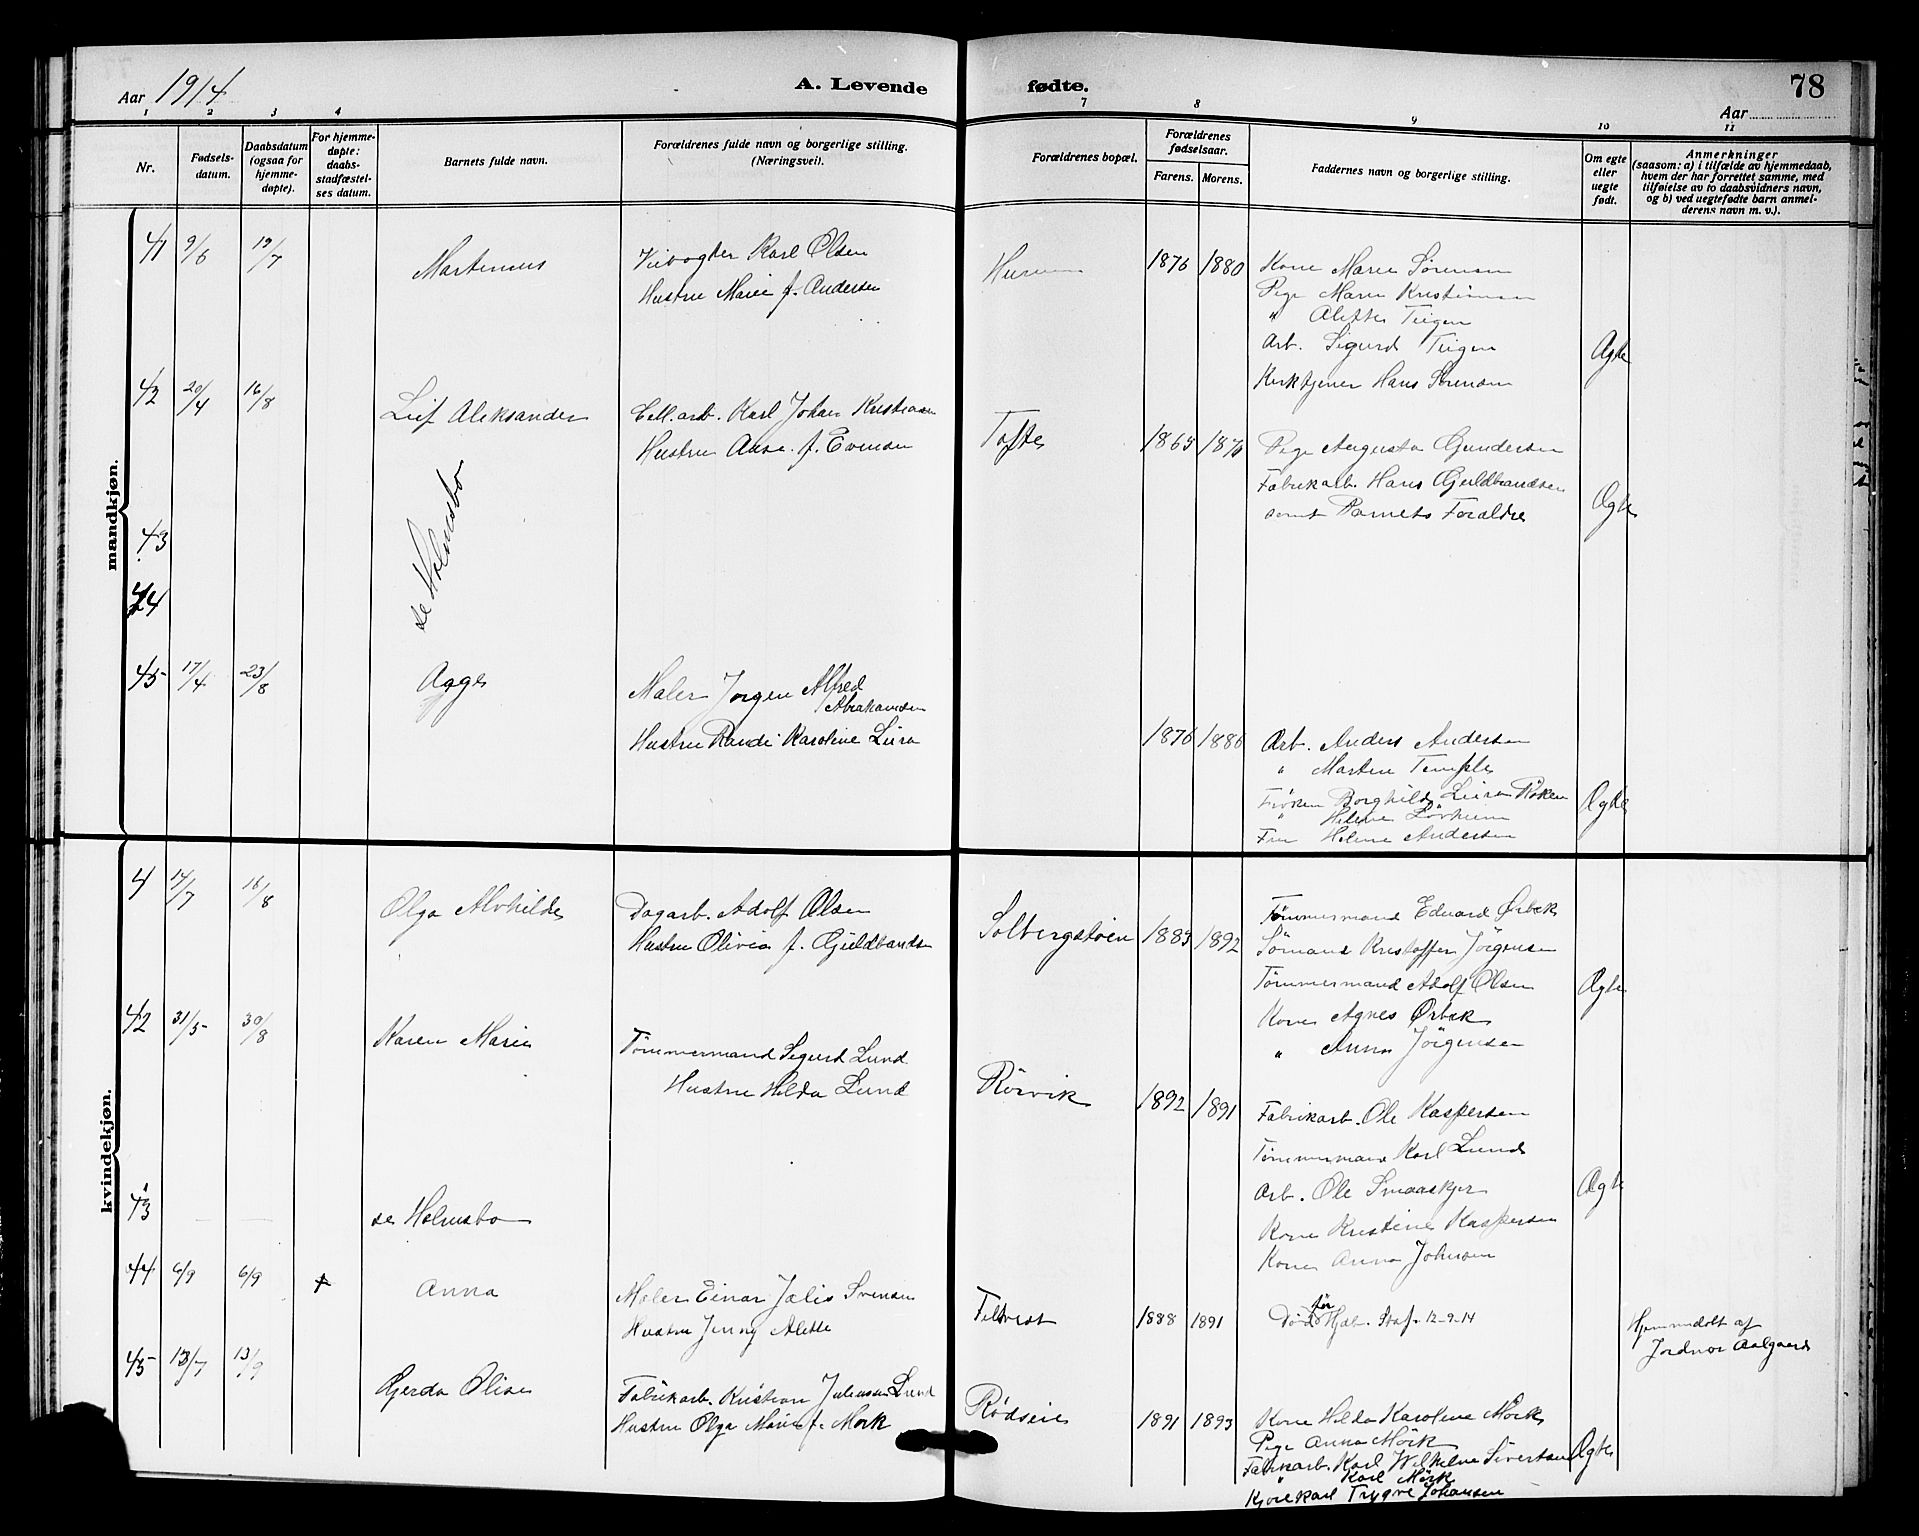 Aar 1914
A. Levende fødte.
78
Aar
1 2 3 4 7 8 9 10 11
Nr.
Fødsels-
datum.
Daabsdatum
(ogsaa for
hjemme-
døpte).
For hjemme-
døpte:
daabs-
stadfæstel-
ses datum.
Barnets fulde navn.
Forældrenes fulde navn og borgerlige stilling.
(Næringsvei).
Forældrenes bopæl.
Forældrenes
fødselsaar.
Farens. Morens.
Faddernes navn og borgerlige stilling.
Om egte
eller
uegte
født.
Anmerkninger
(saasom: a) i tilfælde av hjemmedaab,
hvem der har forrettet samme, med
tilføielse av to daabsvidners navn,
og b) ved uegtefødte barn anmel-
derens navn m. v.).
mandkjøn.
41 9/6 19/7 Martinius
Karl Olsen
Hustru Marie f. Andersen
Hurum 1876 1880
Kone Marie Sørensen
Pige Marie Kristiansen
" Alette Teigen
Arb. Sigurd Teigen
Kirketjener Hans Sørensen
Ægte
42 20/4 16/8 Leif Aleksander
Cell.arb. Karl Johan Kristiansen
Hustru Anna f. Evensen
Tofte 1865 1870
Pige Augusta Gundersen
Fabrikarb. Hans Guldbrandsen
samt Barnets Forældre
Ægte
43
44
se Holmsbo
45 17/4 23/8 Agge
Maler Jørgen Alfred
Abrahamsen
Hustru Randi Karoline Leira
1876 1886
Arb. Anders Andersen
" Martin Temple
Frøken Borghild Leira Røken
" Helene
Fru Helene Andersen
Ægte
kvindekjøn.
4 14/7 16/8 Olga Alvhilde
Dagarb. Adolf Olsen
Hustru Olivia f. Gjuldbrandsen
Solbergstøen 1889 1892
Tømmermand Edvard Ørbek
Sømand Kristoffer Jørgensen
Tømmermand Adolf Olsen
Kone Agnes Ørbek
" Anna Jørgensen
Ægte
42 31/5 30/8 Karen Marie
Tømmermand Sigurd Lund
Hustru Hilda Lund
Rørvik 1892 1891
Fabrikarb. Ole Kaspersen
Tømmermand Karl Lund
Arb. Ole Smaaskjær
Kone Kristine Kaspersen
Kone Anna Johnsen
Ægte
43 se Holmsbo
44 6/9 6/9 + Anna
Maler Einar Julis Svensen
Hustru Jenny Alette
Filtvest 1888 1891
Død før Hjdb. Staf. 12-9-14
Hjemmedøbt af
Jordmor Aalgaard
45 13/7 13/9 Gjerda Olise
Fabrikarb. Kristian Julius Lund
Hustru Olga Marie f. Mørk
Rødseie 1891 1893
Kone Hilda Karoline Mørk
Pige Anna Mørk
Fabrikarb. Karl Wilhelm Sivertsen
" Karl Mørk
Kjørekarl Trygve Johansen
Ægte